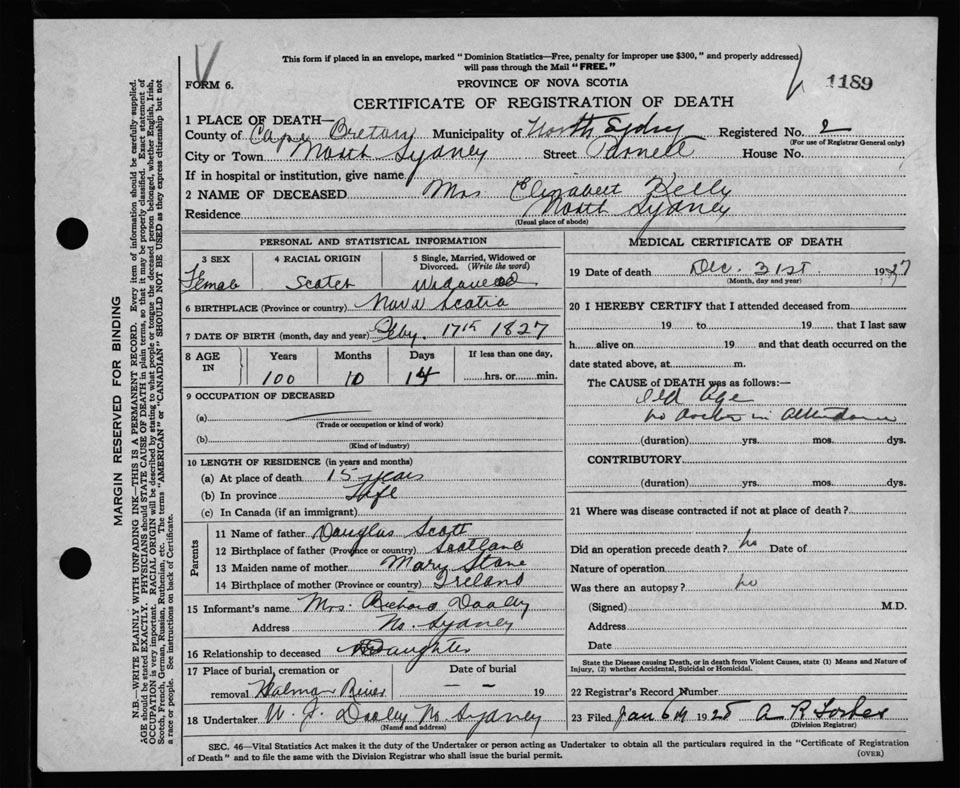 This form if placed in an envelope, marked "Dominion Statistics—Free, penalty for improper use $300," and properly addressed
will pass through the Mail "FREE."
FORM 6.
PROVINCE OF NOVA SCOTIA
1189
CERTIFICATE OF REGISTRATION OF DEATH
1 PLACE OF DEATH—
County of Cape Breton Municipality of North Sydney Registered No. 2
(For use of Registrar General only)
City or Town North Sydney Street House No.
If in hospital or institution, give name
2 NAME OF DECEASED Mrs Elizabeth Kelly
Residence North Sydney
(Usual place of abode)
PERSONAL AND STATISTICAL INFORMATION
3 SEX 4 RACIAL ORIGIN 5 Single, Married, Widowed or Divorced. (Write the word)
Female Scotch Widowed
6 BIRTHPLACE (Province or country) Nova Scotia
7 DATE OF BIRTH (month, day and year) Feby. 17th 1827
8 AGE IN Years Months Days If less than one day,
100 10 14 hrs. or min.
9 OCCUPATION OF DECEASED
(a)
(Trade or occupation or kind of work)
(b)
(Kind of industry)
10 LENGTH OF RESIDENCE (in years and months)
(a) At place of death 15 years
(b) In province Life
(c) In Canada (if an immigrant)
Parents
11 Name of father Douglas Scott
12 Birthplace of father (Province or country) Scotland
13 Maiden name of mother Mary Stone
14 Birthplace of mother (Province or country) Ireland
15 Informant's name Mrs. Richard Dooley
Address No. Sydney
16 Relationship to deceased Daughter
17 Place of burial, cremation or Date of burial
removal River — — 19
18 Undertaker W. J. Dooley No. Sydney
(Name and address)
MEDICAL CERTIFICATE OF DEATH
19 Date of death Dec. 31st 1927
(Month, day and year)
20 I HEREBY CERTIFY that I attended deceased from
19 to 19 that I last saw
h alive on 19 and that death occurred on the
date stated above, at m.
The CAUSE of DEATH was as follows:—
Old Age
no doctor in attendance
(duration) yrs. mos. dys.
CONTRIBUTORY
(duration) yrs. mos. dys.
21 Where was disease contracted if not at place of death?
Did an operation precede death? no Date of
Nature of operation
Was there an autopsy? no
(Signed) M.D.
Address
Date
State the Disease causing Death, or in death from Violent Causes, state (1) Means and Nature of
Injury, (2) whether Accidental, Suicidal or Homicidal.
22 Registrar's Record Number
23 Filed Jan 6th 1928 A R Forbes
(Division Registrar)
SEC. 46—Vital Statistics Act makes it the duty of the Undertaker or person acting as Undertaker to obtain all the particulars required in the "Certificate of Registration
of Death" and to file the same with the Division Registrar who shall issue the burial permit.
(OVER)
MARGIN RESERVED FOR BINDING
N.B.—WRITE PLAINLY WITH UNFADING INK—THIS IS A PERMANENT RECORD. Every item of information should be carefully supplied.
AGE should be stated EXACTLY. PHYSICIANS should STATE CAUSE OF DEATH in plain terms, so that it may be properly classified. Exact statement of
OCCUPATION is very important. RACIAL ORIGIN will be described by stating to what people or tongue the deceased person belonged, whether English, Irish,
Scotch, French, German, Russian, Ruthenian, etc. The terms "AMERICAN" or "CANADIAN" SHOULD NOT BE USED as they express citizenship but not
a race or people. See instructions on back of Certificate.